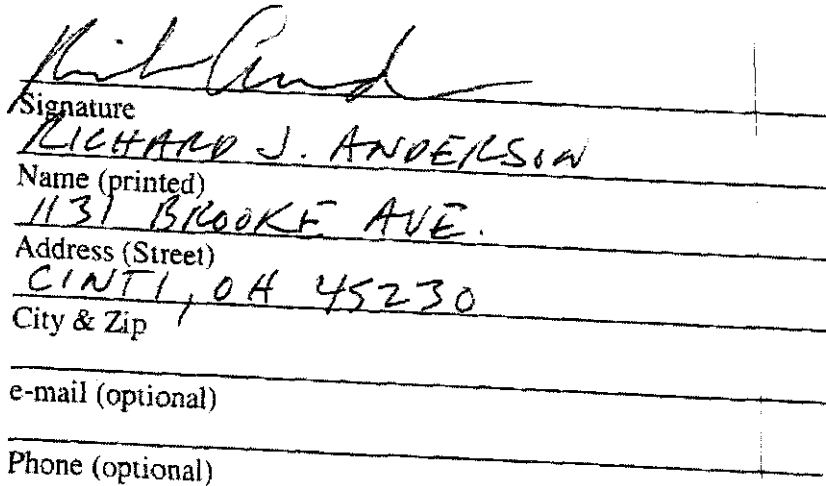 Signature
RICHARD J. ANDERSON
Name (printed)
1131 BROOKE AVE.
Address (Street)
CINTI, OH 45230
City & Zip
e-mail (optional)
Phone (optional)